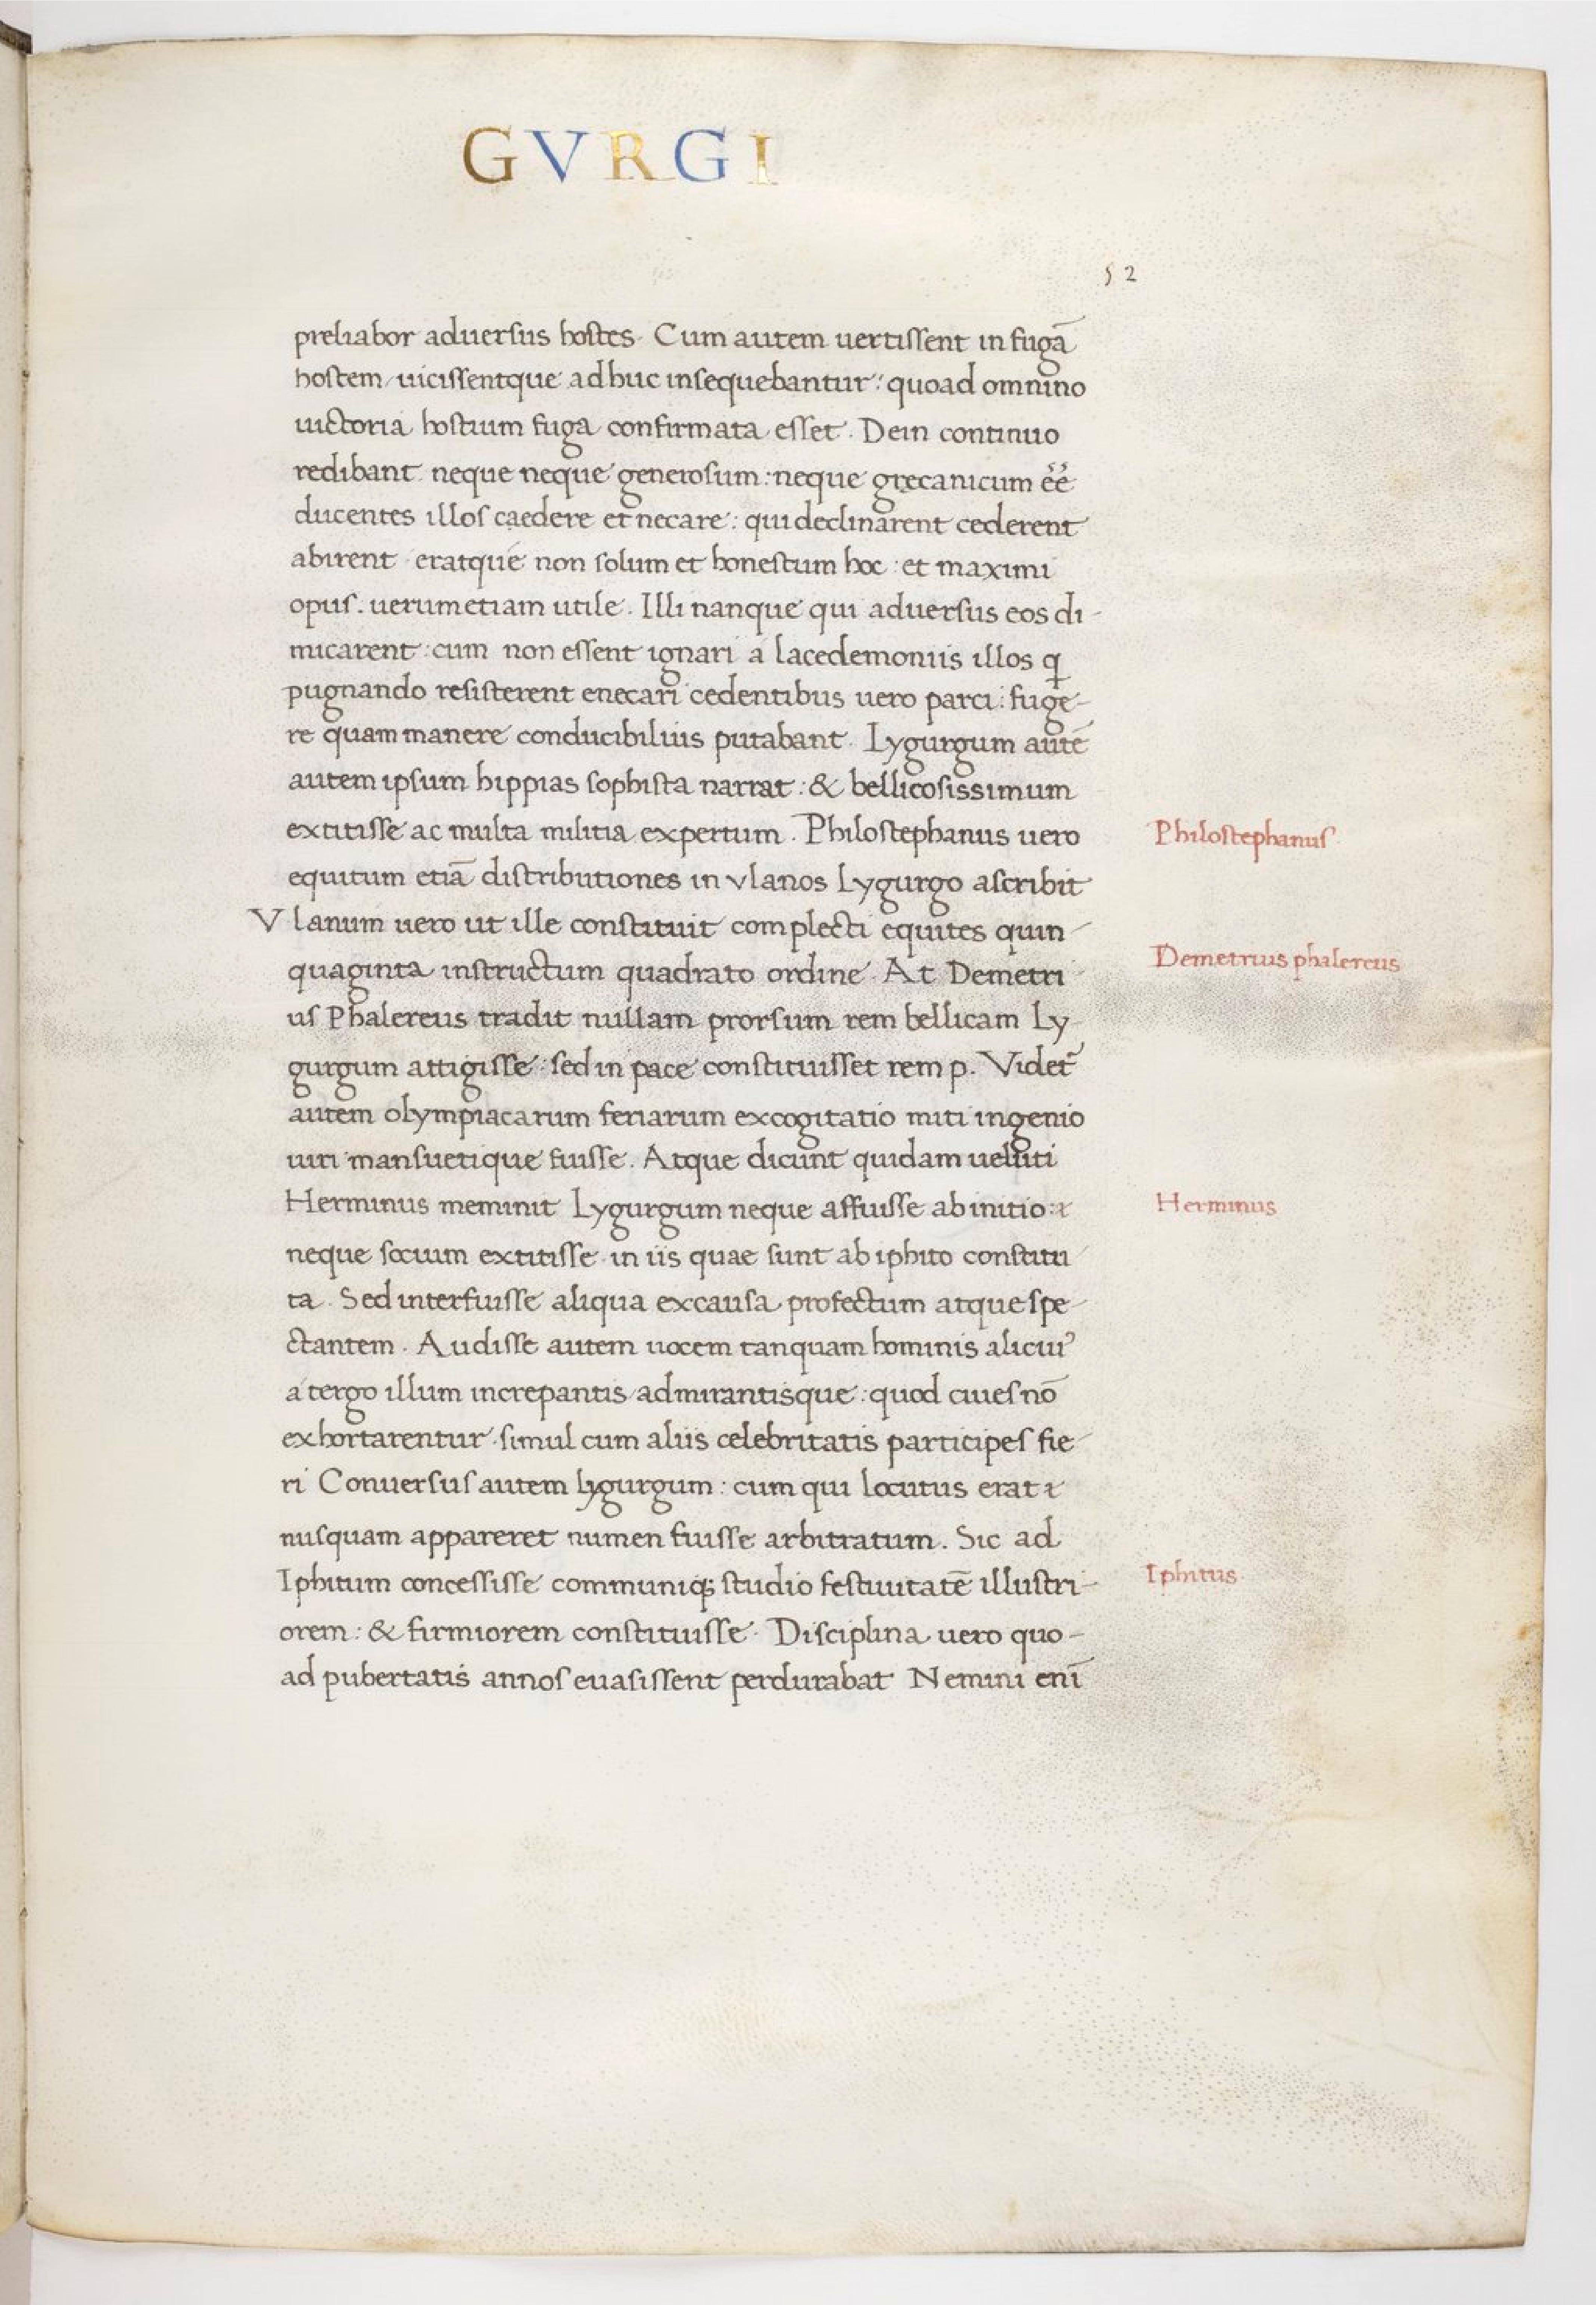 GVRGI
52
preliabor aduersus hostes. Cum autem uertissent in fugā
hostem / uicissentque adhuc insequebantur: quoad omnino
uictoria hostium fuga confirmata esset. Dein continuo
redibant neque neque generosum: neque grecanicum ēē
ducentes illos caedere et necare: qui declinarent cederent
abirent eratque non solum et honestum hoc: et maximi
opus. uerumetiam utile. Illi nanque qui aduersus eos di-
micarent: cum non essent ignari a lacedemoniis illos ꝗ
pugnando resisterent enecari cedentibus uero parci: fuge-
re quam manere conducibilius putabant. Lygurgum autē
autem ipsum hippias sophista narrat: & bellicosissimum
extitisse ac multa militia expertum. Philostephanus uero
Philostephanus
equitum etiā distributiones in vlanos Lygurgo ascribit
Vlanum uero ut ille constituit complecti equites quin-
quaginta instructum quadrato ordine. At Demetri-
Demetrius phalereus
us Phalereus tradit nullam prorsum rem bellicam Ly-
gurgum attigisse: sed in pace constituisset rem p. Videt᷑
autem olympiacarum feriarum excogitatio miti ingenio
uiri mansuetique fuisse. Atque dicunt quidam ueluti
Herminus meminit Lygurgum neque affuisse ab initio: ⁊
Herminus
neque socium extitisse in iis quae sunt ab iphito constitu-
ta. Sed interfuisse aliqua excausa profectum atque spe-
ctantem. Audisse autem uocem tanquam hominis alicuiꝰ
a tergo illum increpantis / admirantisque: quod ciues nō
exhortarentur simul cum aliis celebritatis participes fie-
ri Conuersus autem lygurgum: cum qui locutus erat ⁊
nusquam appareret numen fuisse arbitratum. Sic ad
Iphitum concessisse communiq; studio festiuitatē illustri-
Iphitus
orem: & firmiorem constituisse. Disciplina uero quo-
ad pubertatis annos euasissent perdurabat Nemini enī